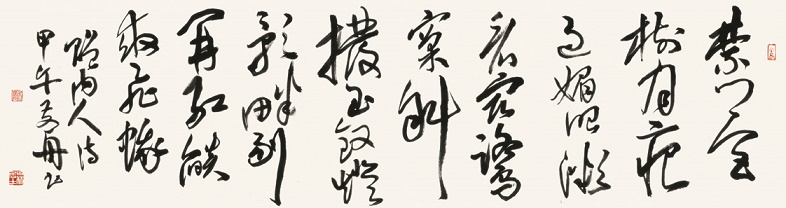 禁门宫
树月痕
过媚眼
看宿鹭
窠斜
拨玉钗灯
影畔剔
开红焰
救飞蛾
赠内人诗
甲午